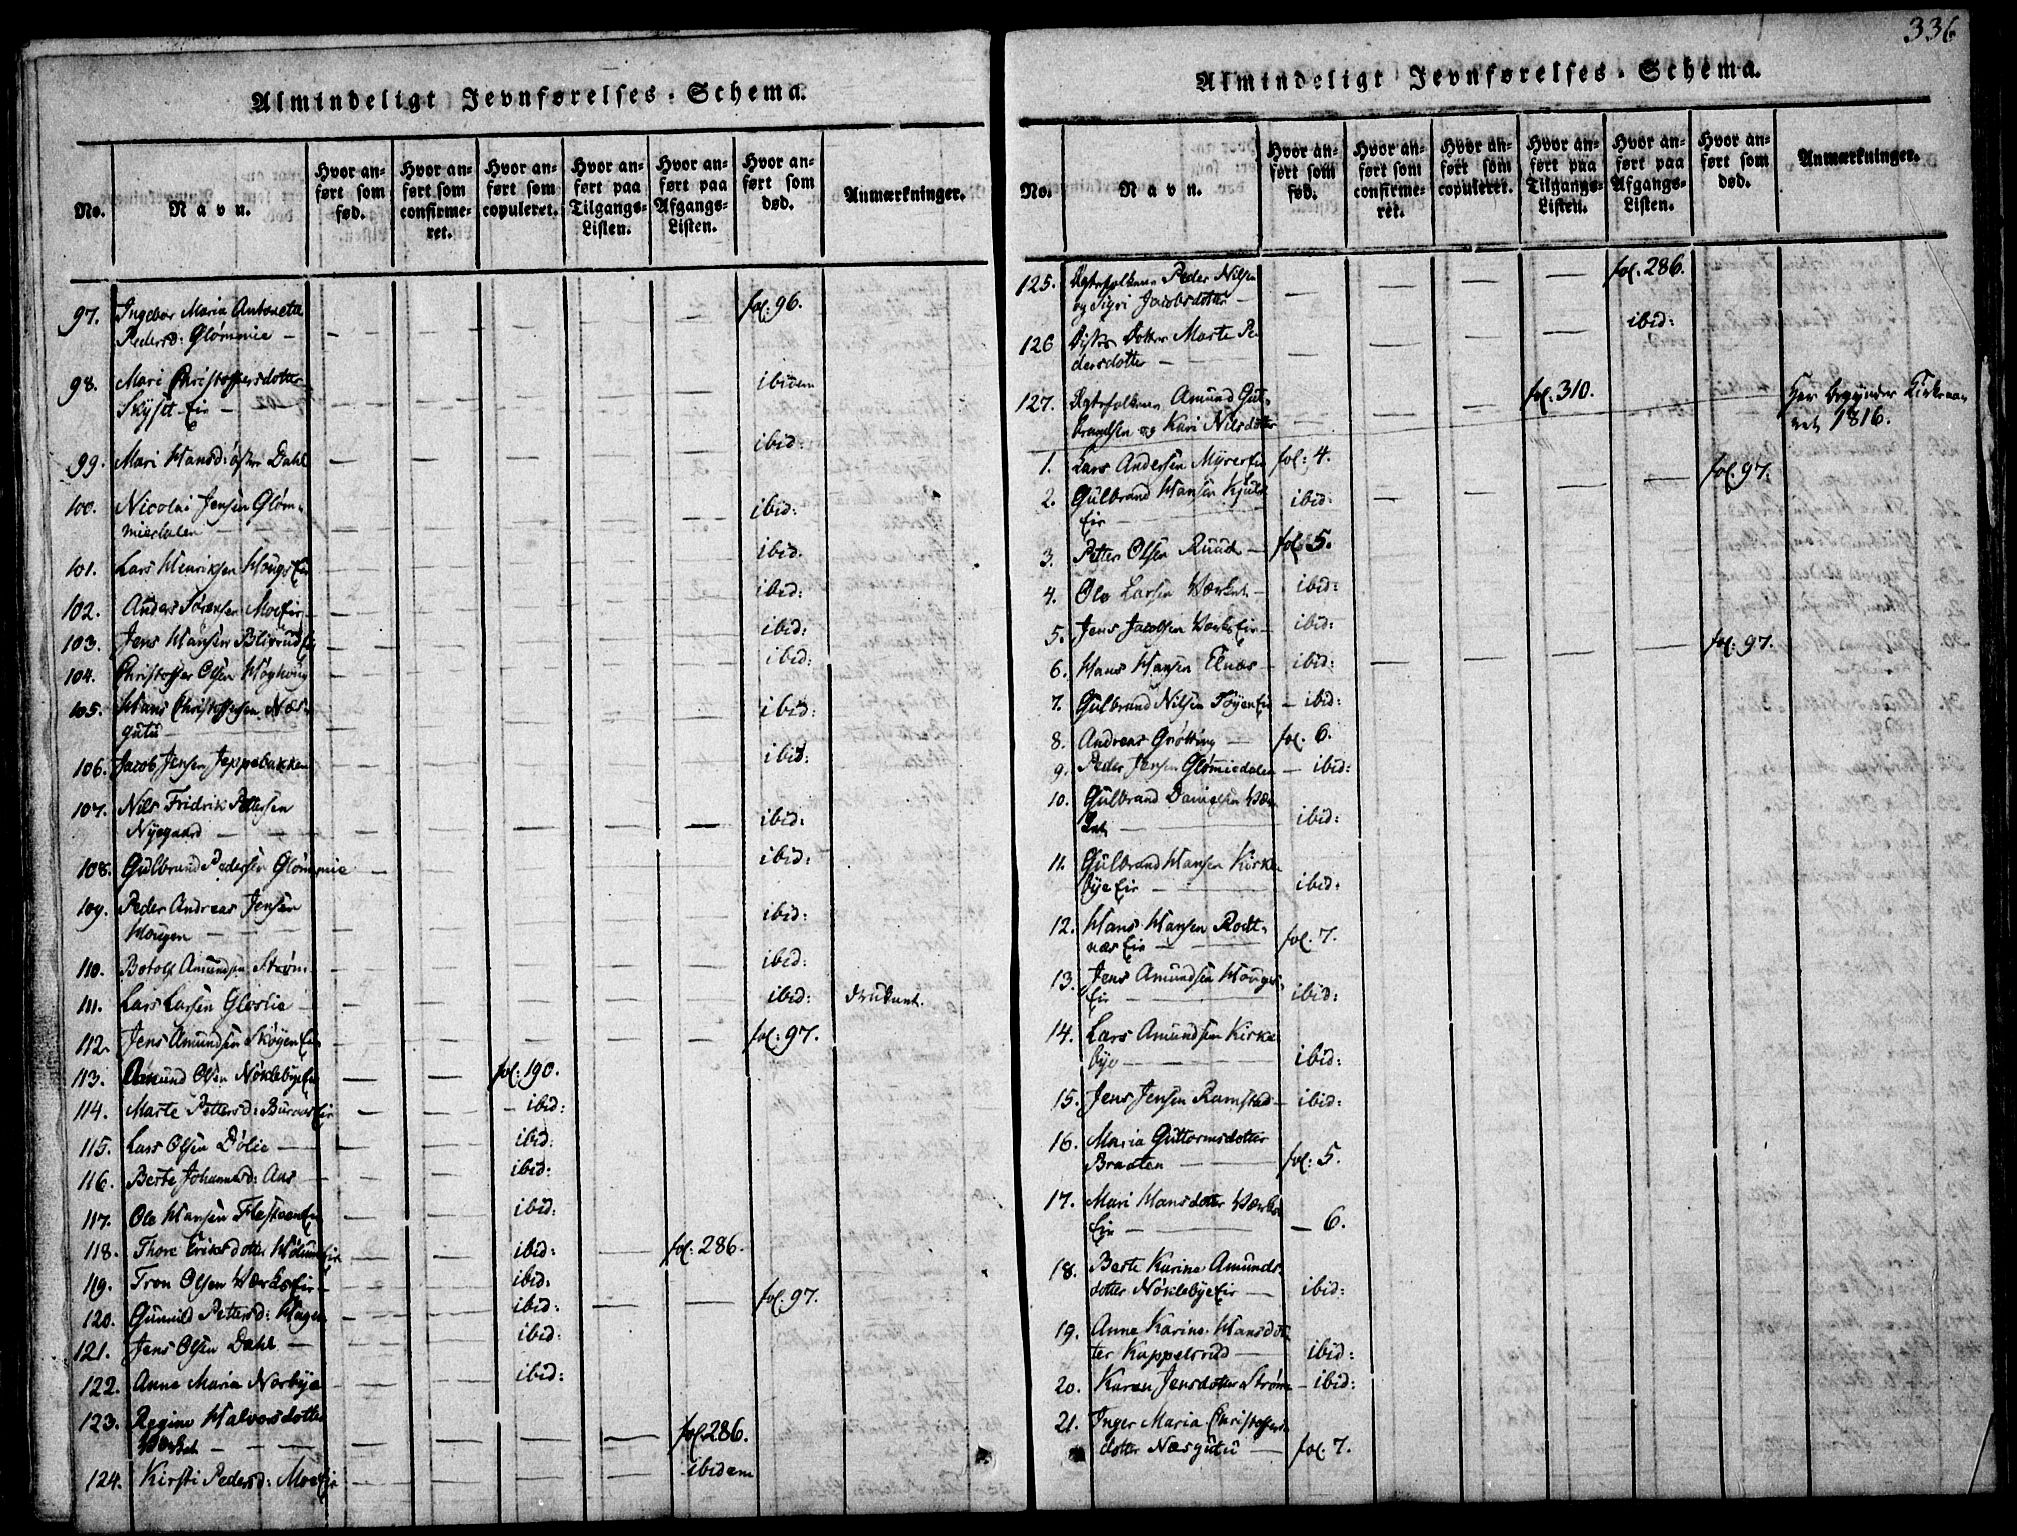 336
Almindeligt Jevnførelses-Schema.
No.
Navn.
Hvor anført som fød.
Hvor anført som confirmeret.
Hvor anført som copuleret.
Hvor anført paa Tilgangs-Listen.
Hvor anført paa Afgangs-Listen.
Hvor anført som død.
Anmærkninger.
97. Ingebor Maria Antonette fol. 96.
Pedersd: Glømmie — —
98. Mari Christoffersdotter ibidem
99. Mari Hansd: østre Dahl ibid:
100. Nicolai Jensen Gløm- ibid:
miedalen —
101. Lars Henriksen Hougs Eie ibid.
102. Anders Sørensen Moe Eie — ibid:
103. Jens Hansen Blixrud Eie ibid:
104. Christoffer Olsen ibid:
105. Hans Christoffersen Næs- ibid:
gutu —
106. Jacob Jensen Jeppebakken ibid:
107. Nils Fridrik Pettersen
Nyegaard — — ibid:
108. Gulbrand Pedersen Glømmie — ibid:
109. Peder Andreas Jensen
Hougen — — ibid:
110. Botolf Amundsen Strøm ibid:
111. Lars Larsen Gloslie — ibid: druknet.
112. Jens Amundsen Skøyen Eie fol: 97.
113. Amund Olsen Nøklebye Eie — — fol: 190.
114. Marte Pettersd: Buraas Eie — — ibid:
115. Lars Olsen Dølie — ibid:
116. Berte Johannesd: Aas — ibid:
117. Ole Hansen Flesteen Eie ibid:
118. Thore Eriksdotter Eie ibid: — fol: 286.
119. Tron Olsen Værks Eie — ibid:
120. Gunnild Pettersd: Hagen ibid: — — fol. 97.
121. Jens Olsen Dahl — ibid:
122. Anne Maria Norbye ibid:
123. Regine Halvorsdotter
Værket — — — fol. 286.
124. Kirsti Pedersd: Moe Eie ibidem
Almindeligt Jevnførelses-Schema.
No.
Navn.
Hvor anført som fød.
Hvor anført som confirmeret.
Hvor anført som copuleret.
Hvor anført paa Tilgangs-Listen.
Hvor anført paa Afgangs-Listen.
Hvor anført som død.
Anmærkninger.
125. Ægtefolkene Peder Nilsen — fol. 286.
og Sigri Jacobsdotter —
126 Disses Dotter Marte Pe- — ibid:
dersdotter —
127. Ægtefolkene Amund Gul- fol. 310. Her begynder Kirkeaa-
brandsen og Kari Nilsdotter ret 1816.
1. Lars Andersen Myrer Eie fol: 4.
2. Gulbrand Hansen ibid: — — — — fol. 97.
Eie —
3. Petter Olsen Ruud — fol. 5.
4. Ole Larsen Værket — ibid:
5. Jens Jacobsen Værks Eie — ibid:
6. Hans Hansen Elnæs — ibid: — — — — fol: 97.
7. Gulbrand Nilsen Tøyen Eie — ibid:
8. Andreas Grøtting — fol. 6.
9. Peder Jensen Glømmiedalen — ibid:
10. Gulbrand Danielsen Vær-
ket — ibid:
11. Gulbrand Hansen Kirke-
bye Eie — ibid:
12. Hans Hansen Rodt-
næs Eie — fol. 7.
13. Jens Amundsen Hougs-
Eie — ibid:
14. Lars Amundsen Kirke-
bye — ibid:
15. Jens Jensen Ramstad — ibid:
16. Maria Guttormsdotter
Braaten — fol. 5.
17. Mari Hansdotter Værks-
Eie — — 6.
18. Berte Karine Amunds-
dotter Nøklebye Eie — ibid:
19. Anne Karine Hansdot-
ter Kappelsrud — ibid:
20. Karen Jensdotter Strøm — ibid:
21. Inger Maria Christoffers-
dotter Næsgutu — fol. 7.